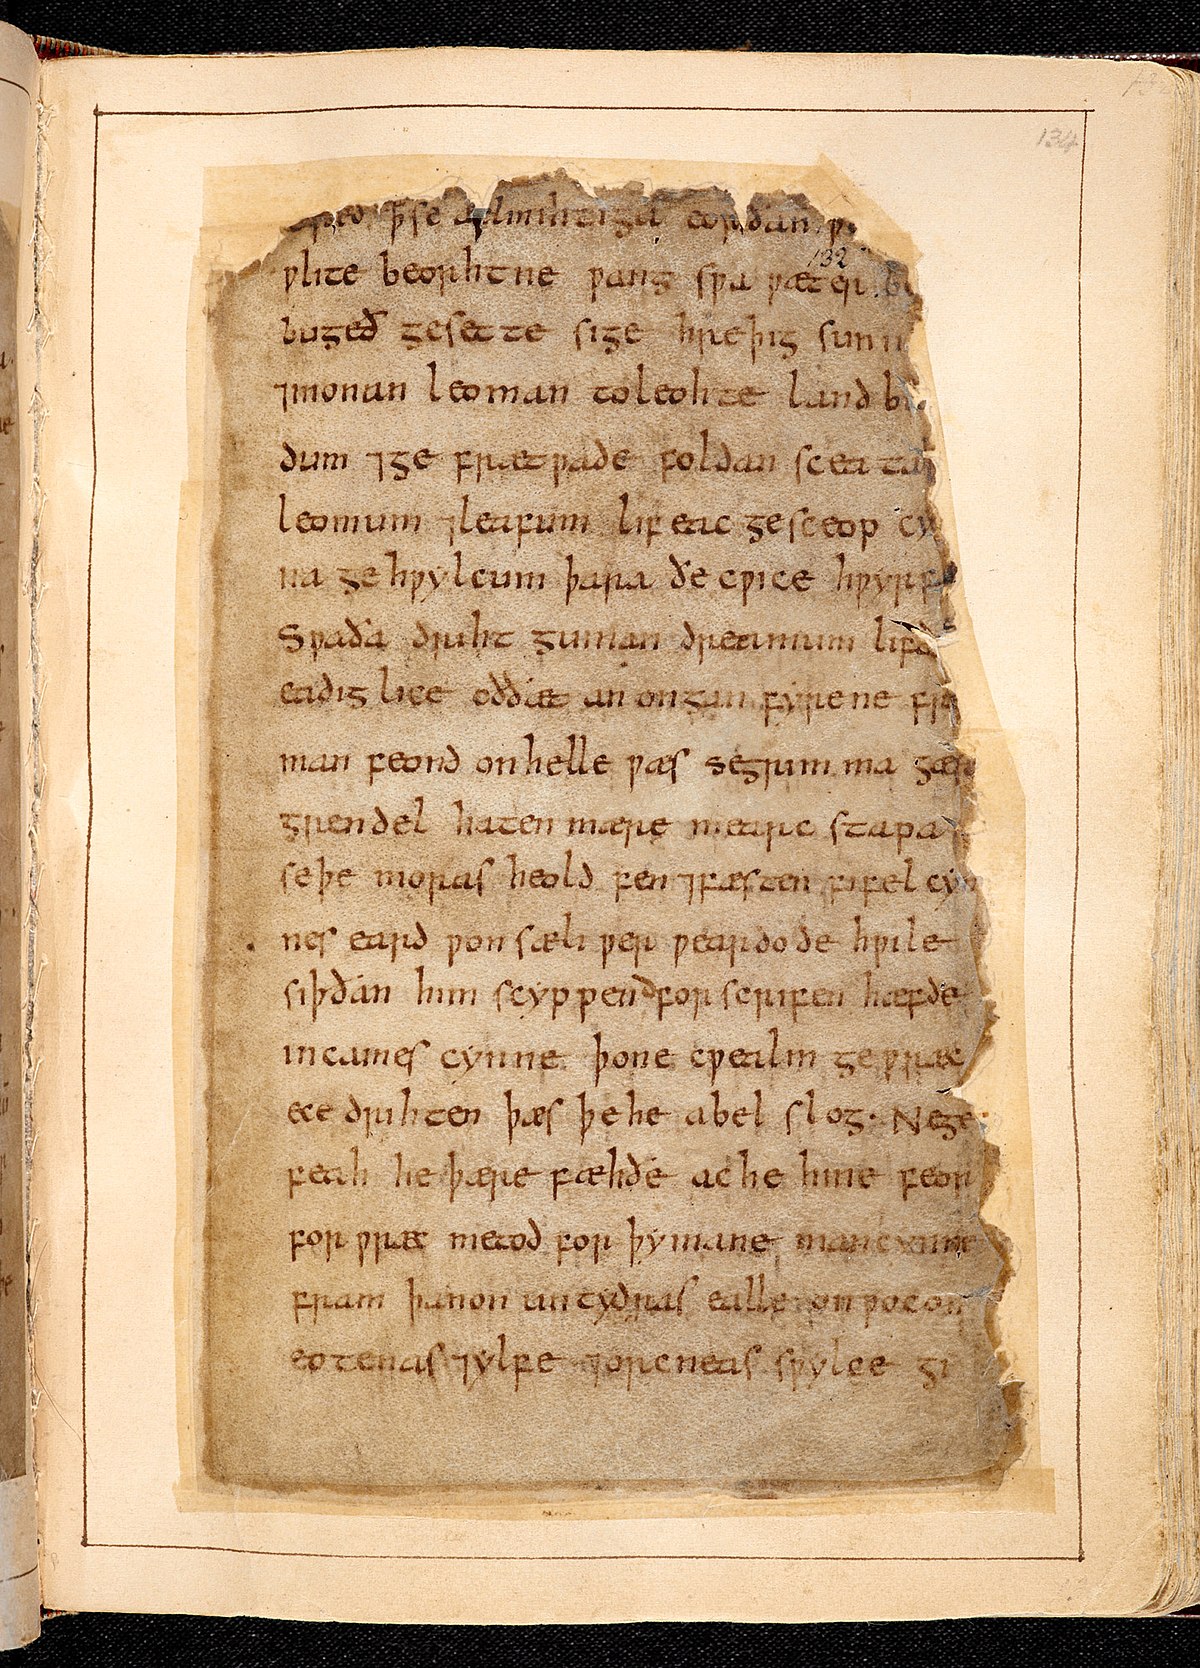 134
132
cƿeð þ se ælmihtiga eorðan
ƿlite beorhtne ƿang sƿa ƿæter
bugeð gesette sige hreþig sun
⁊monan leoman toleohte land
dum ⁊ge frætƿade foldan sceatas
leomum ⁊leafum lif eac gesceop cy
na ge hƿylcum þara ðe cƿice hƿyrf
Sƿaða driht guman dreamum lifd
eadig lice oððæt an ongan fyrene fre
man feond onhelle ƿæs segrimma gæs
grendel haten mære mearc stapa
seþe moras heold fen ⁊fæsten fifel cyn
nes eard ƿon sæli ƿer ƿeardode hƿile
siþðan him scyppend forscrifen hæfde
incames cynne þone cƿealm geƿræc
ece drihten þæs þehe abel slog. Nege
feah he þære fæhðe ac he hine feor
for ƿræc metod for þymane mancynne
fram þanon untydras ealle onƿocon
eotenas ⁊ylfe ⁊orcneas sƿylce gi